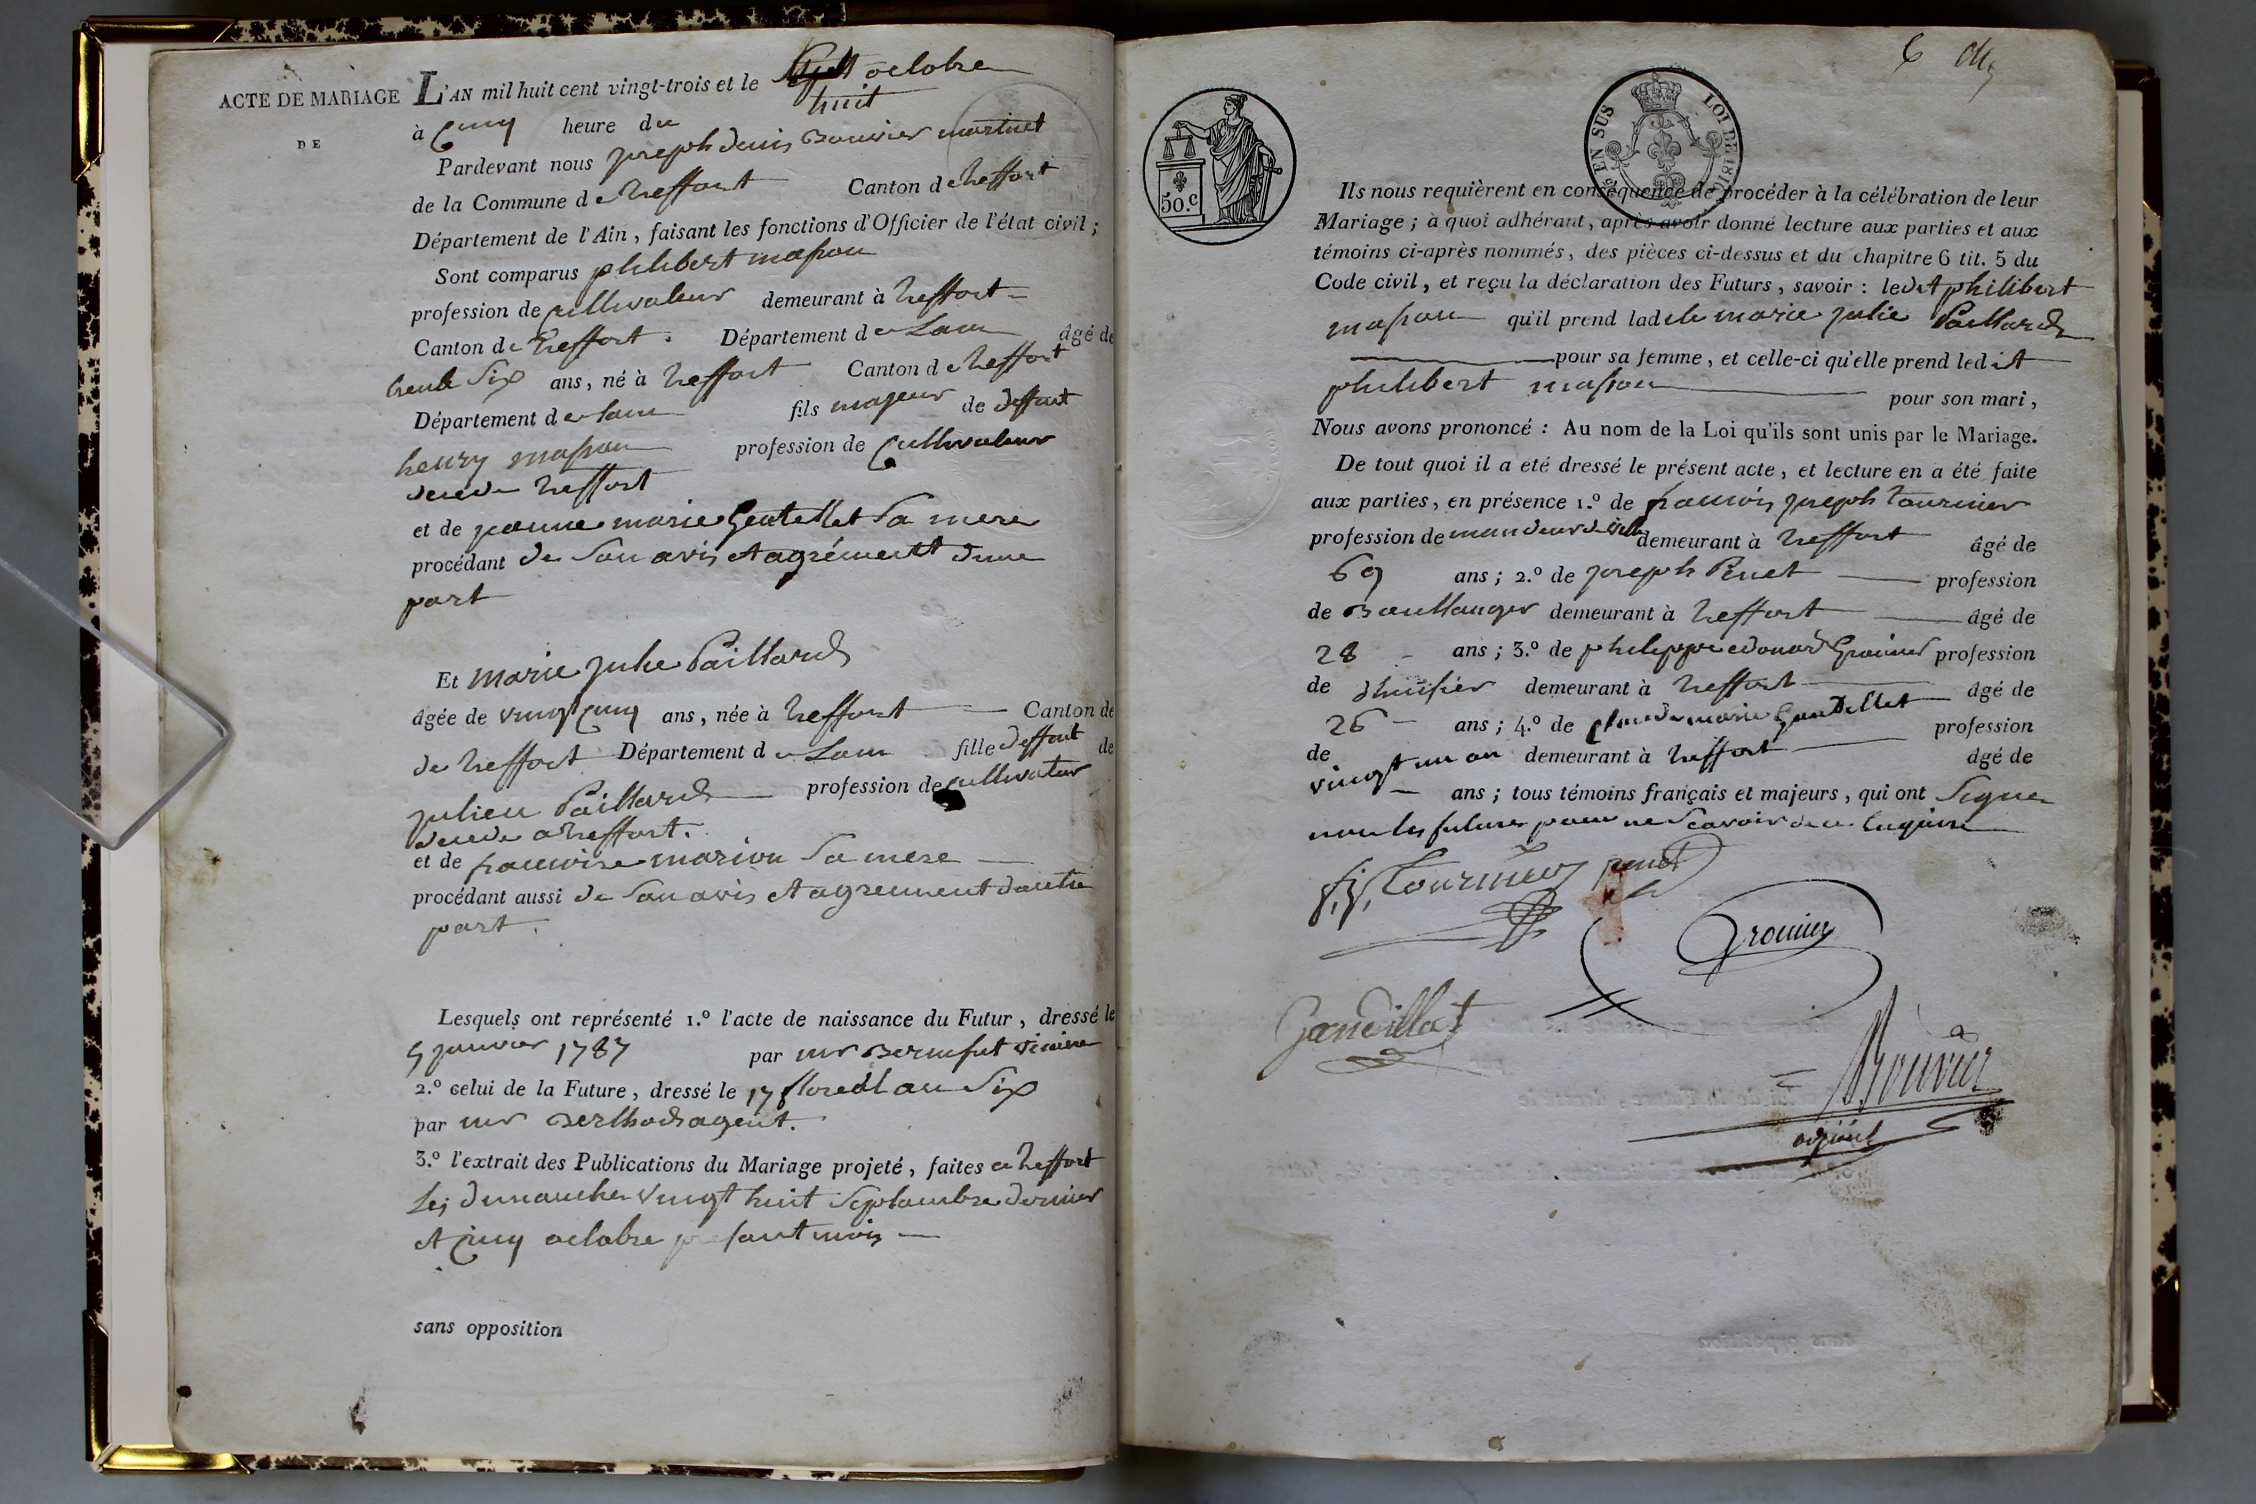 ACTE DE MARIAGE
DE
L'AN mil huit cent vingt-trois et le octobre
huit
à Cinq heure du
Pardevant nous joseph denis Bouvier martinet
de la Commune de treffort Canton de treffort
Département de l'Ain, faisant les fonctions d'Officier de l'état civil;
Sont comparus philibert masson
profession de cultivateur demeurant à treffort
Canton de treffort. Département de Lain âgé de
trente Six ans, né à treffort Canton de treffort
Département de lain fils majeur de deffunt
henry masson profession de Cultivateur
treffort
et de jeanne marie Gentellet Sa mere
procédant de Son avis et agrément dune
part
Et marie julie Paillard
âgée de vingt Cinq ans, née à treffort Canton de
de treffort Département de Lain fille deffunt de
julien Paillard profession de cultivateur
a treffort.
et de francoise marion Sa mere
procédant aussi de Son avis et agrement dautre
part.
Lesquels ont représenté 1.º l'acte de naissance du Futur, dressé le
janvier 1787 par mr vicaire
2.º celui de la Future, dressé le 17 floreal an Six
par mr Berthod agent.
3.º l'extrait des Publications du Mariage projeté, faites a treffort
Les dimanches vingt huit Septambre dernier
et Cinq octobre presant mois
sans opposition
6
EN SUS LOI DE 1816
50.c
Ils nous requièrent en conséquence de procéder à la célébration de leur
Mariage; à quoi adhérant, après avoir donné lecture aux parties et aux
témoins ci-après nommés, des pièces ci-dessus et du chapitre 6 tit. 5 du
Code civil, et reçu la déclaration des Futurs, savoir: ledit philibert
masson qu'il prend ladite marie julie Paillard
pour sa femme, et celle-ci qu'elle prend ledit
philibert masson pour son mari,
Nous avons prononcé: Au nom de la Loi qu'ils sont unis par le Mariage.
De tout quoi il a eté dressé le présent acte, et lecture en a été faite
aux parties, en présence 1.º de francois joseph tournier
profession de mandeur de ville demeurant à treffort âgé de
69 ans; 2.º de joseph Penet profession
de Boullanger demeurant à treffort âgé de
28 ans; 3.º de philippe edouard Gromier profession
de dhuissier demeurant à treffort âgé de
26 ans; 4.º de claude marie Gandillet profession
de demeurant à treffort âgé de
vingt un an
ans; tous témoins français et majeurs, qui ont Signé
non les futures pour ne Scavoir de ce enquise
f. j. Tournier penet
Gromier
Gandillat
Bouvier
adjoint